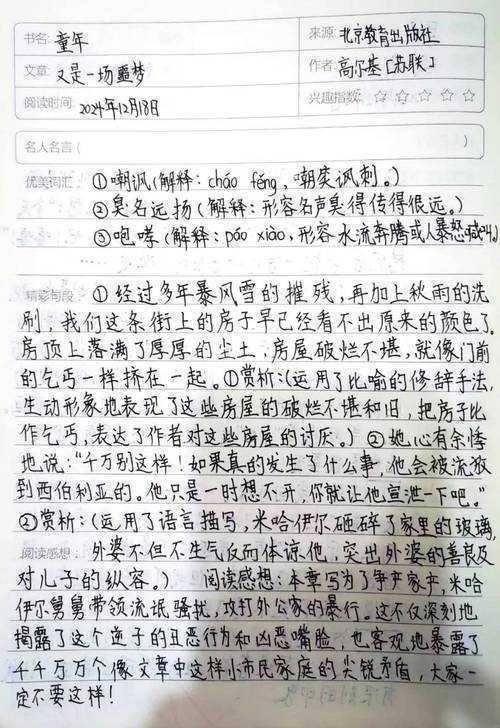 书名: 童年
来源: 北京教育出版社
文章: 又是一场噩梦
作者: 高尔基[苏联]
阅读时间: 2024年12月18日
兴趣指数: ☆ ☆ ☆ ☆ ☆
名人名言 ( )
优美词汇: ①嘲讽(解释: cháo fěng, 嘲笑讽刺。)
②臭名远扬(解释: 形容名声臭得传得很远。)
③咆哮(解释: páo xiào, 形容水流奔腾或人暴怒喊叫。)
精彩句段: ①经过多年暴风雪的摧残,再加上秋雨的洗
刷,我们这条街上的房子早已经看不出原来的颜色了。
房顶上落满了厚厚的尘土,房屋破烂不堪,就像门前
的乞丐一样挤在一起。①赏析:(运用了比喻的修辞手法,
生动形象地表现了这些房屋的破烂不堪和旧,把房子比
作乞丐,表达了作者对这些房屋的讨厌。) ②她心有余悸
地说:“千万别这样!如果真的发生了什么事,他会被流放
到西伯利亚的。他只是一时想不开,你就让他宣泄一下吧。”
②赏析:(运用了语言描写,米哈伊尔砸碎了家里的玻璃,
阅读感想: 外婆不但不生气反而体谅他,突出外婆的善良及
对儿子的纵容。) 阅读感想:本章写为了争产家产,米哈
伊尔舅舅带领流氓骚扰,攻打外公家的暴行。这不仅深刻地
揭露了这个逆子的丑恶行为和凶恶嘴脸,也客观地暴露了
千千万万个像文章中这样小市民家庭的尖锐矛盾,大家一
定不要这样!